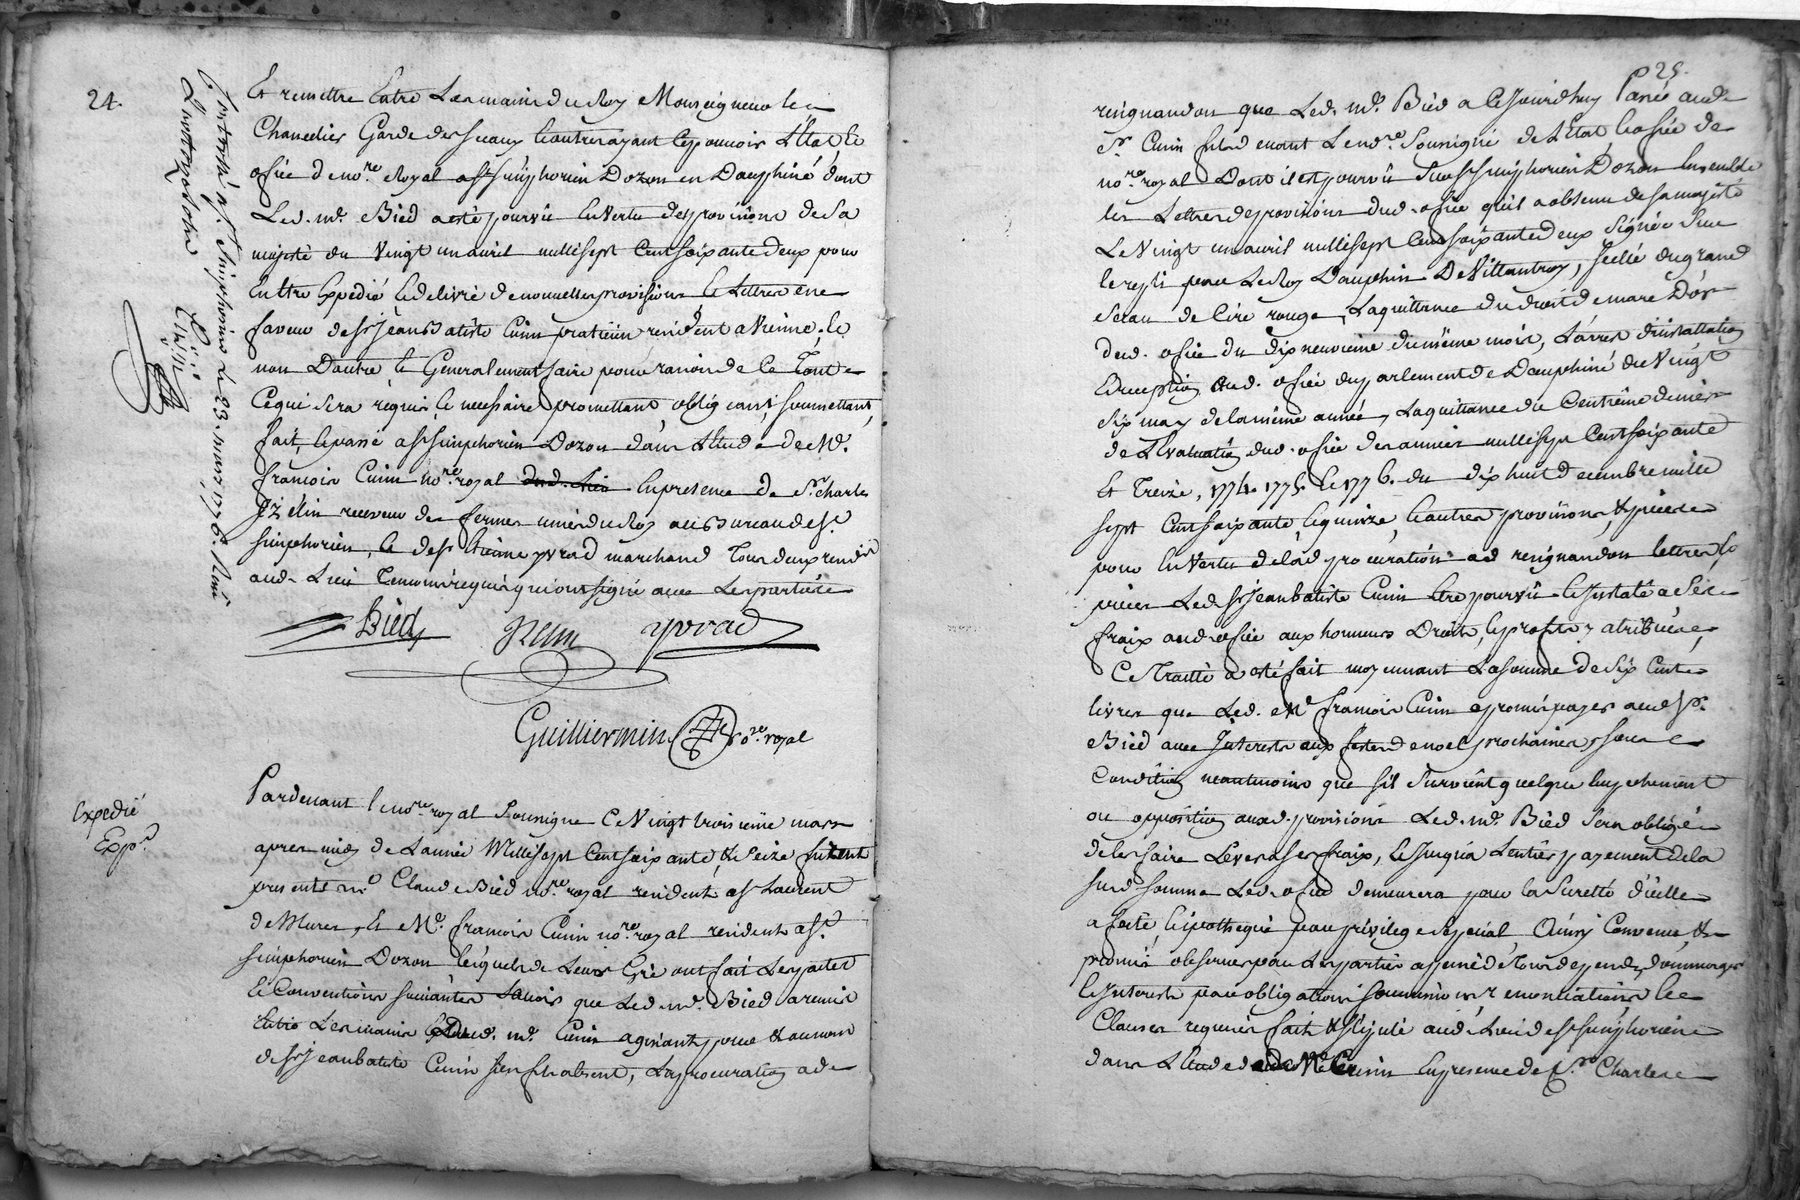 24.
Et remettre Entre Les mains du Roy Monseigneur le
Chancelier Garde des Sceaux & autres ayant le pouvoir L'Etat &
office de no.re Royal a St Simphorien Dozon en Dauphiné dont
Led. me. Bied a esté pourvû En Vertu des provisions de Sa
majesté du Vingt un avril mille sept Cent soixante deux pour
En être Expedié & delivré de nouvelles provisions & Lettres en
faveur de Sr Jean Batiste Cuin praticien resident a Vienne, &
non D'autre & Generalement faire pour raison de Ce Tout
Ce qui Sera requis & necessaire promettant, oblig eant, soumettant,
fait, & passé a St simphorien Dozon dans L'Etude de Me.
françois Cuin no.re royal En presence de Sr. charles
receveur des fermes unies du Roy au Bureau de St.
simphorien, & de Sr Etienne yvrad marchand Tous deux residts
aud. Lieu Temoins requis qui ont signé avec Les parties
Bied yvrad
Guilliermin no.re royal
Controlé a St. Simphorien Le 23. mars 1776. Reçu
Expedié
Exp.
Pardevant le no.re royal Soussigné Ce Vingt troisieme mars
apres midy de L'année Mille Sept Cent soixante & Seize furent
presents me Claude Bied no.re royal resident a St Laurent
de Mures, Et Me. francois Cuin no.re royal resident a St.
simphorien Dozon lesquels de Leurs Gré ont fait Les pactes
& Conventions suivantes Savoir que Led. me. Bied a remis
Entre Les mains dud. me. Cuin agissant pour & au nom
de Sr Jean batiste Cuin son fils absent, La procuration ad
25.
resignandum que Led. me. Bied a Cejourd'huy Passé aud.
Sr. Cuin fils devant Le no.re Soussigné de L'Etat & office de
no.re royal Dont il est pourvû Sur St simphorien Dozon Ensemble
les Lettres de provisions dud. office qu'il a obtenu de sa majesté
Le Vingt un avril mille sept Cent soixante deux Signées Sur
le reply par Le Roy Dauphin De Villantroy, scellé du grand
Sceau de Cire rouge, La quittance du droit de marc D'or
dud. office du dix neuvieme du même mois, L'arrest d'installation
& reception aud. office du parlement de Dauphiné du Vingt
Six may de la même année, La quittance du Centième denier
de L'Evaluation dud. office des années mille sept Cent soixante
Et Treize, 1774. 1775. & 1776. du dix huit decembre mille
sept Cent soixante & quinze, & autres provisions, & pieces
pour En Vertu de lad. procuration ad resignandum lettres &
pieces Led. Sr Jean batiste Cuin Etre pourvû & Installé a Ses
fraix aud. office aux honneurs Droits, & profits y atribués
Ce Traitté a eté fait moyennant La somme de Six Cents
livres que Led. Me. francois Cuin a promis payer aud. Sr.
Bied avec Interests aux festes de noel prochaines, sous
Condition neantmoins que s'il survient quelque Empechement
ou opposition auxd. provisions Led. me. Bied Sera obligé
de les faire Lever a ses fraix, & Jusqu'a L'entier payement de la
susd. somme Led. office demeurera pour la Sureté d'icelle
affecté & ipothequé par privilege special Ainsy Convenu, &
promis observer par Les parties a peine de tous depends, dommages
& Interests par obligations soumissions renonciations, &
Clauses requises fait & stipulé aud. Lieu de St simphorien
dans L'Etude de Me Cuin En presence de Sr. Charles